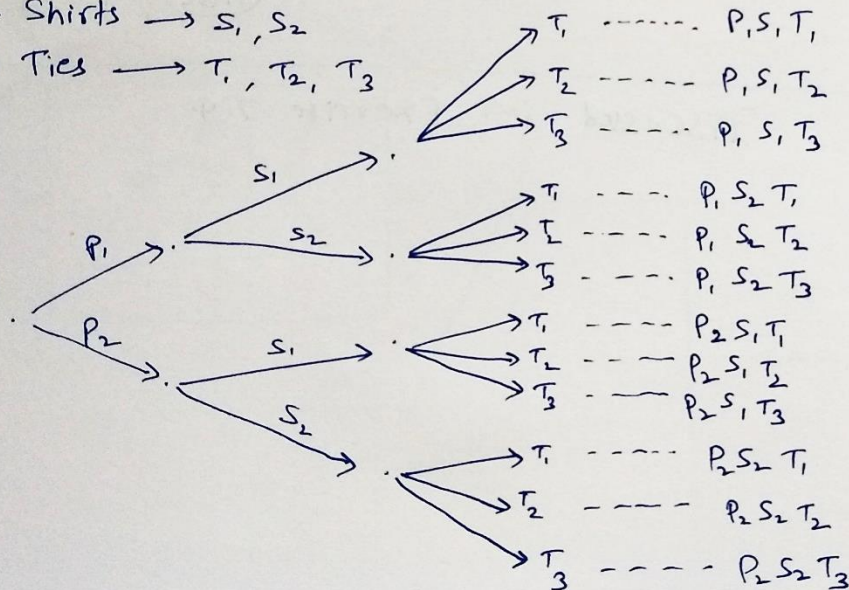 Shirts → S₁, S₂
Ties → T₁, T₂, T₃
T₁ ------- P₁S₁T₁
T₂ ------ P₁S₁T₂
T₃ ----- P₁S₁T₃
S₁
T₁ ---- P₁S₂T₁
P₁
S₂
T₂ ----- P₁S₂T₂
T₃ ---- P₁S₂T₃
T₁ ----- P₂S₁T₁
P₂
S₁
T₂ ----- P₂S₁T₂
T₃ ----- P₂S₁T₃
S₂
T₁ ----- P₂S₂T₁
T₂ ----- P₂S₂T₂
T₃ ----- P₂S₂T₃